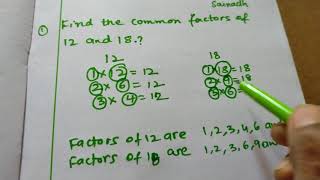 Sairadh
① Find the common factors of
12 and 18.?
12 18
1 × 12 = 12 1 × 18 = 18
2 × 6 = 12 2 × 9 = 18
3 × 4 = 12 3 × 6 =
Factors of 12 are 1, 2, 3, 4, 6 and
Factors of 18 are 1, 2, 3, 6, 9 an